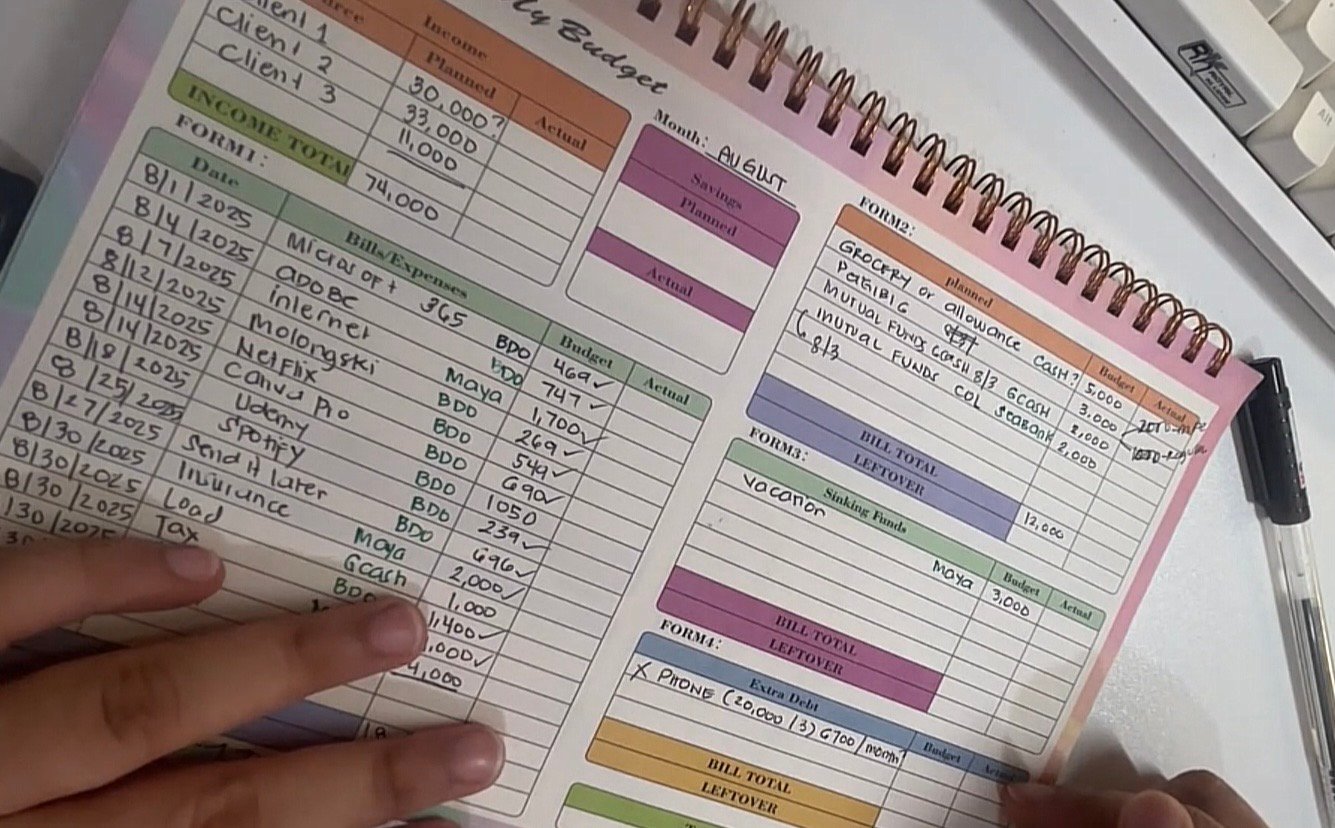 ly Budget
Month: AUGUST
Income
Planned
Actual
Client 1 30,000?
Client 2 33,000
Client 3 11,000
INCOME TOTAL 74,000
Savings
Planned
Actual
FORM1:
Date Bills/Expenses Budget Actual
8/1/2025 Microsoft 365 BDO 469 ✓
8/4/2025 ADOBE BDO 747 ✓
8/7/2025 internet Maya 1,700 ✓
8/12/2025 Molongski BDO 269 ✓
8/14/2025 Netflix BDO 549 ✓
8/14/2025 Canva Pro BDO 690 ✓
8/18/2025 Udemy BDO 1050
8/25/2025 Spotify BDO 239 ✓
8/27/2025 Send it later BDO 696 ✓
8/30/2025 Insurance Maya 2,000 ✓
8/30/2025 Load Gcash 1,000
8/30/2025 Tax BDO 1,400 ✓
FORM2:
planned Budget Actual
GROCERY or allowance CASH? 5,000
PAGIBIG GCASH 3,000
MUTUAL FUNDS GCASH 8/3 2,000
MUTUAL FUNDS COL SEABANK 2,000
↳ 8/3
BILL TOTAL 12,000
LEFTOVER
FORM3:
Sinking Funds Budget Actual
vacation Maya 3,000
BILL TOTAL
LEFTOVER
FORM4:
Extra Debt Budget
X PHONE (20,000/3) 6700/month?
BILL TOTAL
LEFTOVER
Alt